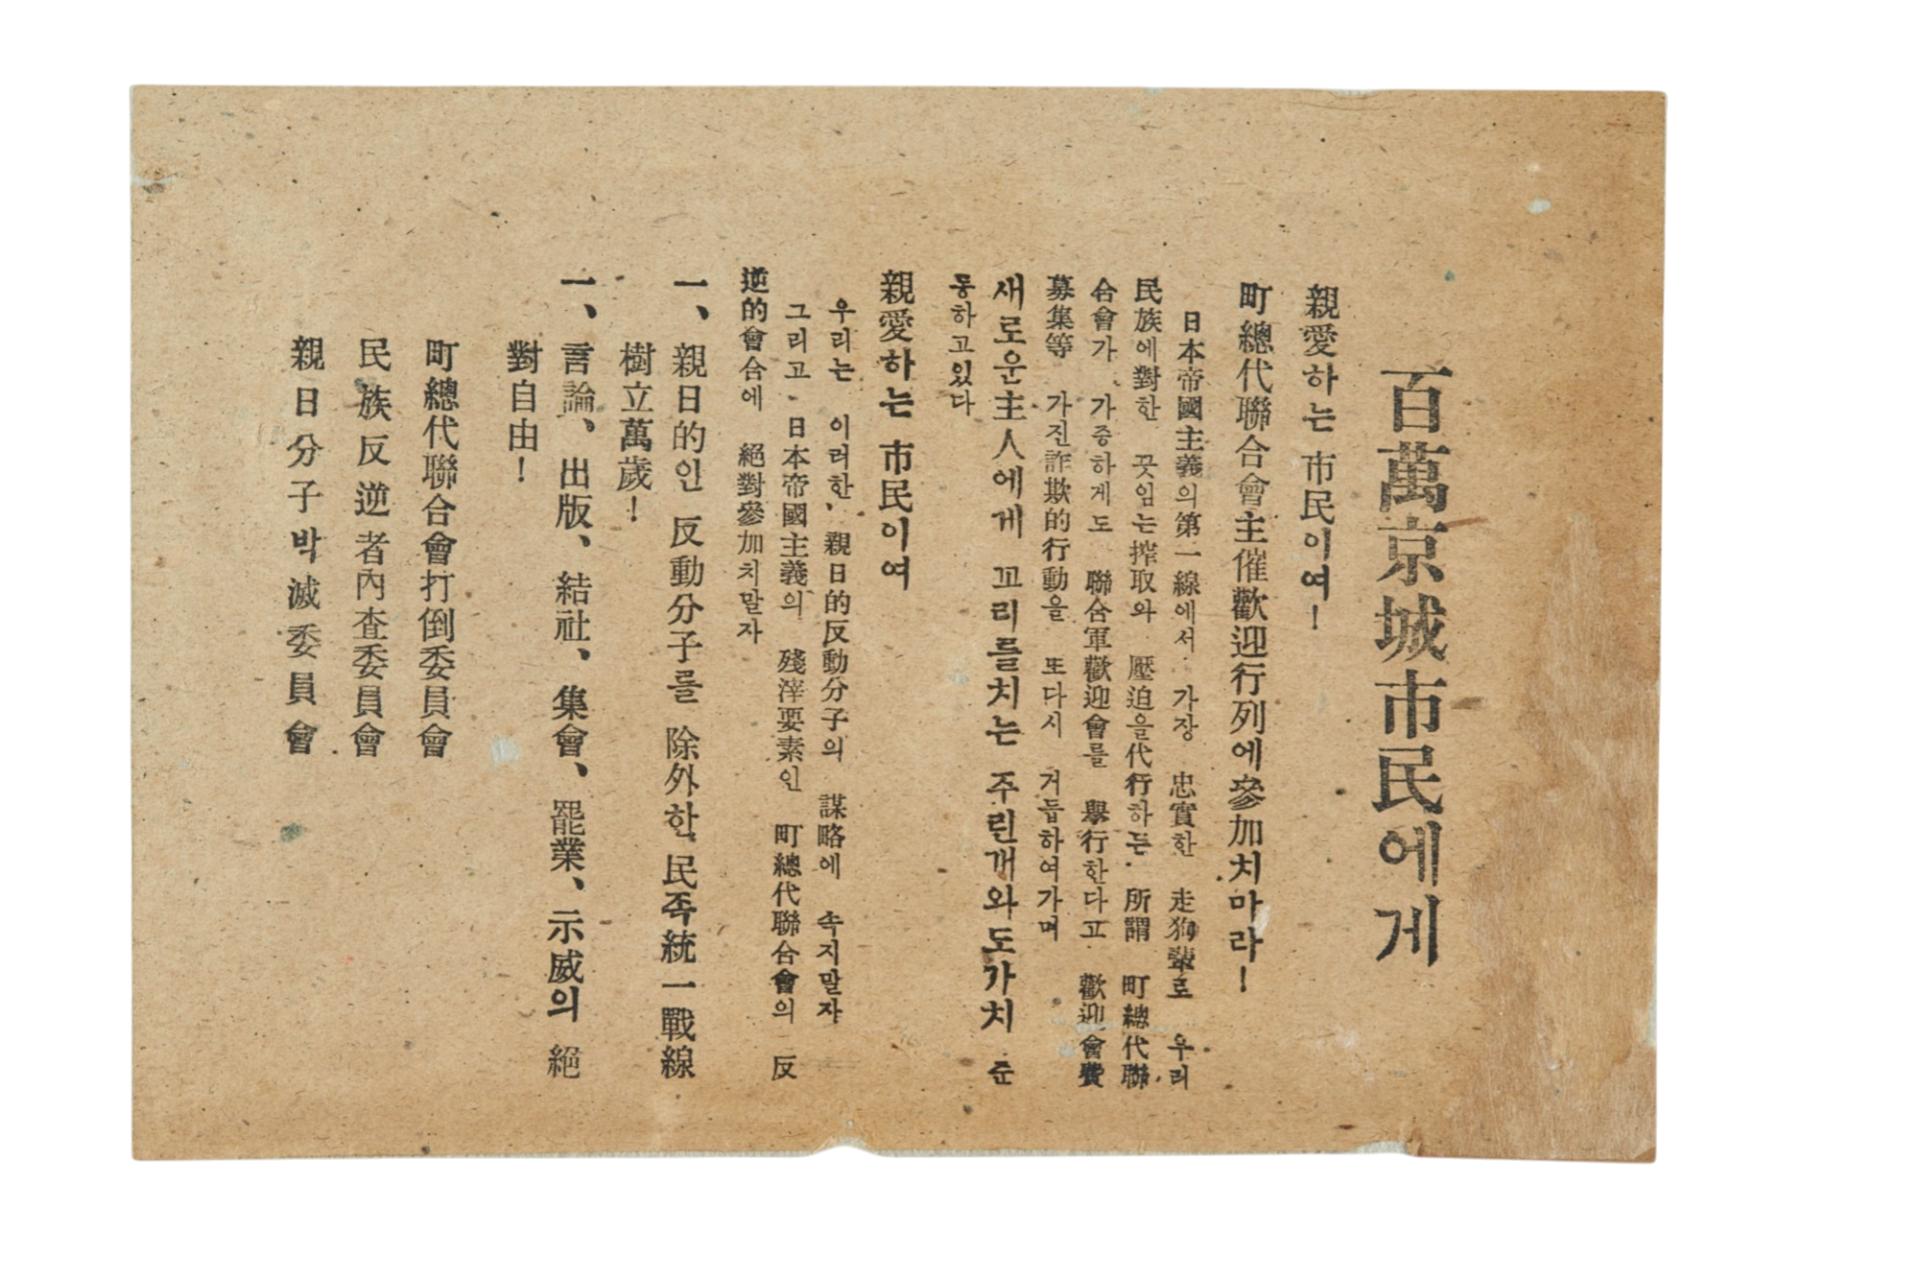 百萬京城市民에게
親愛하는 市民이여!
町總代聯合會主催歡迎行列에參加치마라!
日本帝國主義의第一線에서 가장 忠實한 走狗輩로 우리
民族에對한 끗임는搾取와 壓迫을代行하든 所謂 町總代聯
合會가 가증하게도 聯合軍歡迎會를 擧行한다고 歡迎會費
募集等 가진詐欺的行動을 또다시 거듭하여가며
새로운主人에게 꼬리를치는 주린개와도가치 준
동하고있다
親愛하는 市民이여
우리는 이러한 親日的反動分子의 謀略에 속지말자
그리고 日本帝國主義의 殘滓要素인 町總代聯合會의 反
逆的會合에 絕對參加치말자
一、親日的인 反動分子를 除外한 民족統一戰線
樹立萬歲!
一、言論、出版、結社、集會、罷業、示威의 絕
對自由!
町總代聯合會打倒委員會
民族反逆者內査委員會
親日分子박滅委員會